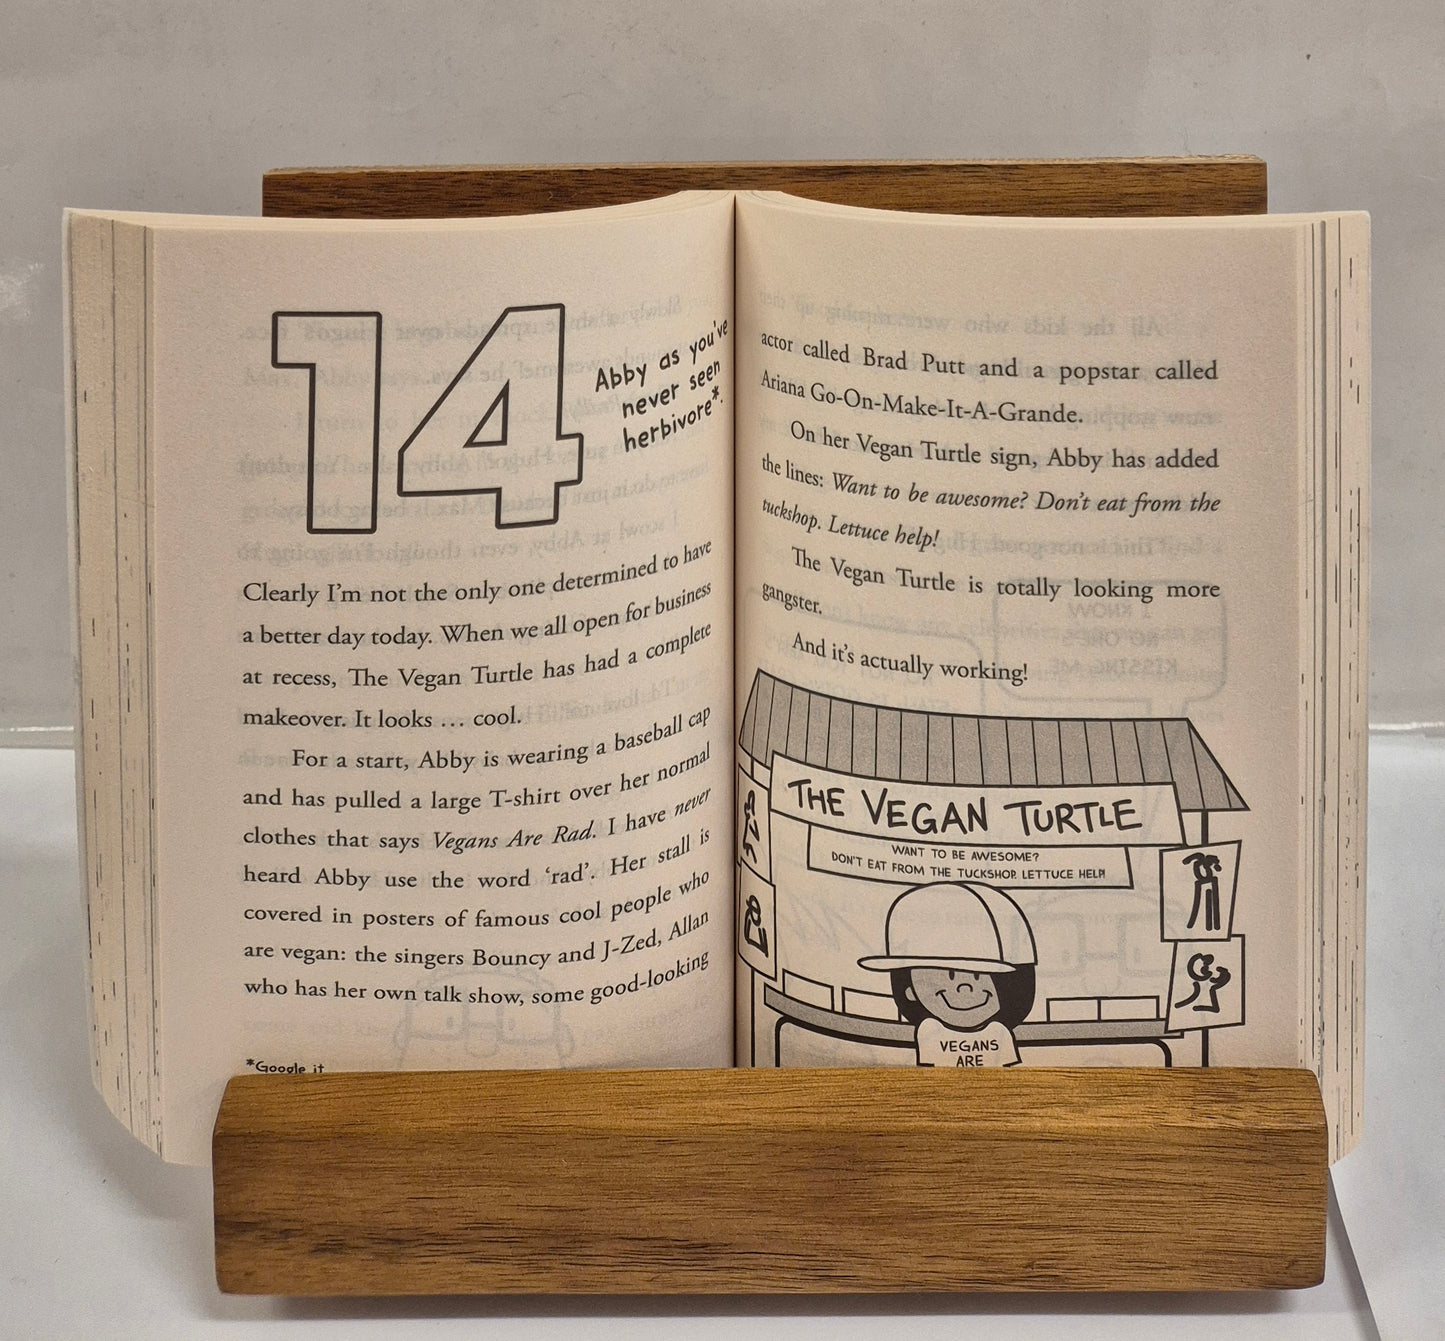 14
Abby as you've
never seen
herbivore*.
Clearly I'm not the only one determined to have
a better day today. When we all open for business
at recess, The Vegan Turtle has had a complete
makeover. It looks … cool.
For a start, Abby is wearing a baseball cap
and has pulled a large T-shirt over her normal
clothes that says Vegans Are Rad. I have never
heard Abby use the word ‘rad’. Her stall is
covered in posters of famous cool people who
are vegan: the singers Bouncy and J-Zed, Allan
who has her own talk show, some good-looking
*Google it
actor called Brad Putt and a popstar called
Ariana Go-On-Make-It-A-Grande.
On her Vegan Turtle sign, Abby has added
the lines: Want to be awesome? Don’t eat from the
tuckshop. Lettuce help!
The Vegan Turtle is totally looking more
gangster.
And it’s actually working!
THE VEGAN TURTLE
WANT TO BE AWESOME?
DON'T EAT FROM THE TUCKSHOP. LETTUCE HELP!
VEGANS
ARE